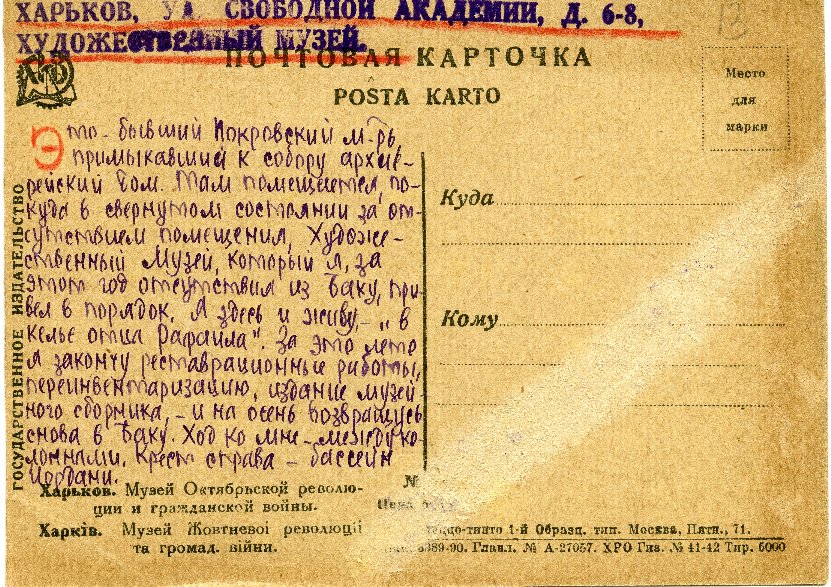 ХАРЬКОВ, УЛ. СВОБОДНОЙ АКАДЕМИИ, Д. 6-8,
ХУДОЖЕСТВЕННЫЙ МУЗЕЙ.
ПОЧТОВАЯ КАРТОЧКА
POSTA KARTO
Место
для
марки
Это - бывший Покровский м-рь,
примыкавший к собору архие-
рейский дом. Там помещается, по-
куда в свернутом состоянии за от-
сутствием помещения, Художе-
ственный Музей, который я, за
этот год отсутствия из Баку, при-
вел в порядок. Я здесь и живу, - "в
келье отца Рафаила". За это лето
я закончу реставрационные работы,
переинвентаризацию, издание музей-
ного сборника, - и на осень возвращусь
снова в Баку. Ход ко мне - между ко-
лоннами. Крест справа - бассейн
Иордани.
Куда
Кому
ГОСУДАРСТВЕННОЕ ИЗДАТЕЛЬСТВО
Харьков. Музей Октябрьской револю-
ции и гражданской войны.
Харків. Музей Жовтневої революції
та громад. війни.
№
Цена
меццо-тинто 1-й Образц. тип. Москва, Пятн., 71.
8989-90. Главл. № А-27057. ХРО Гиз. № 41-42 Тир. 5000